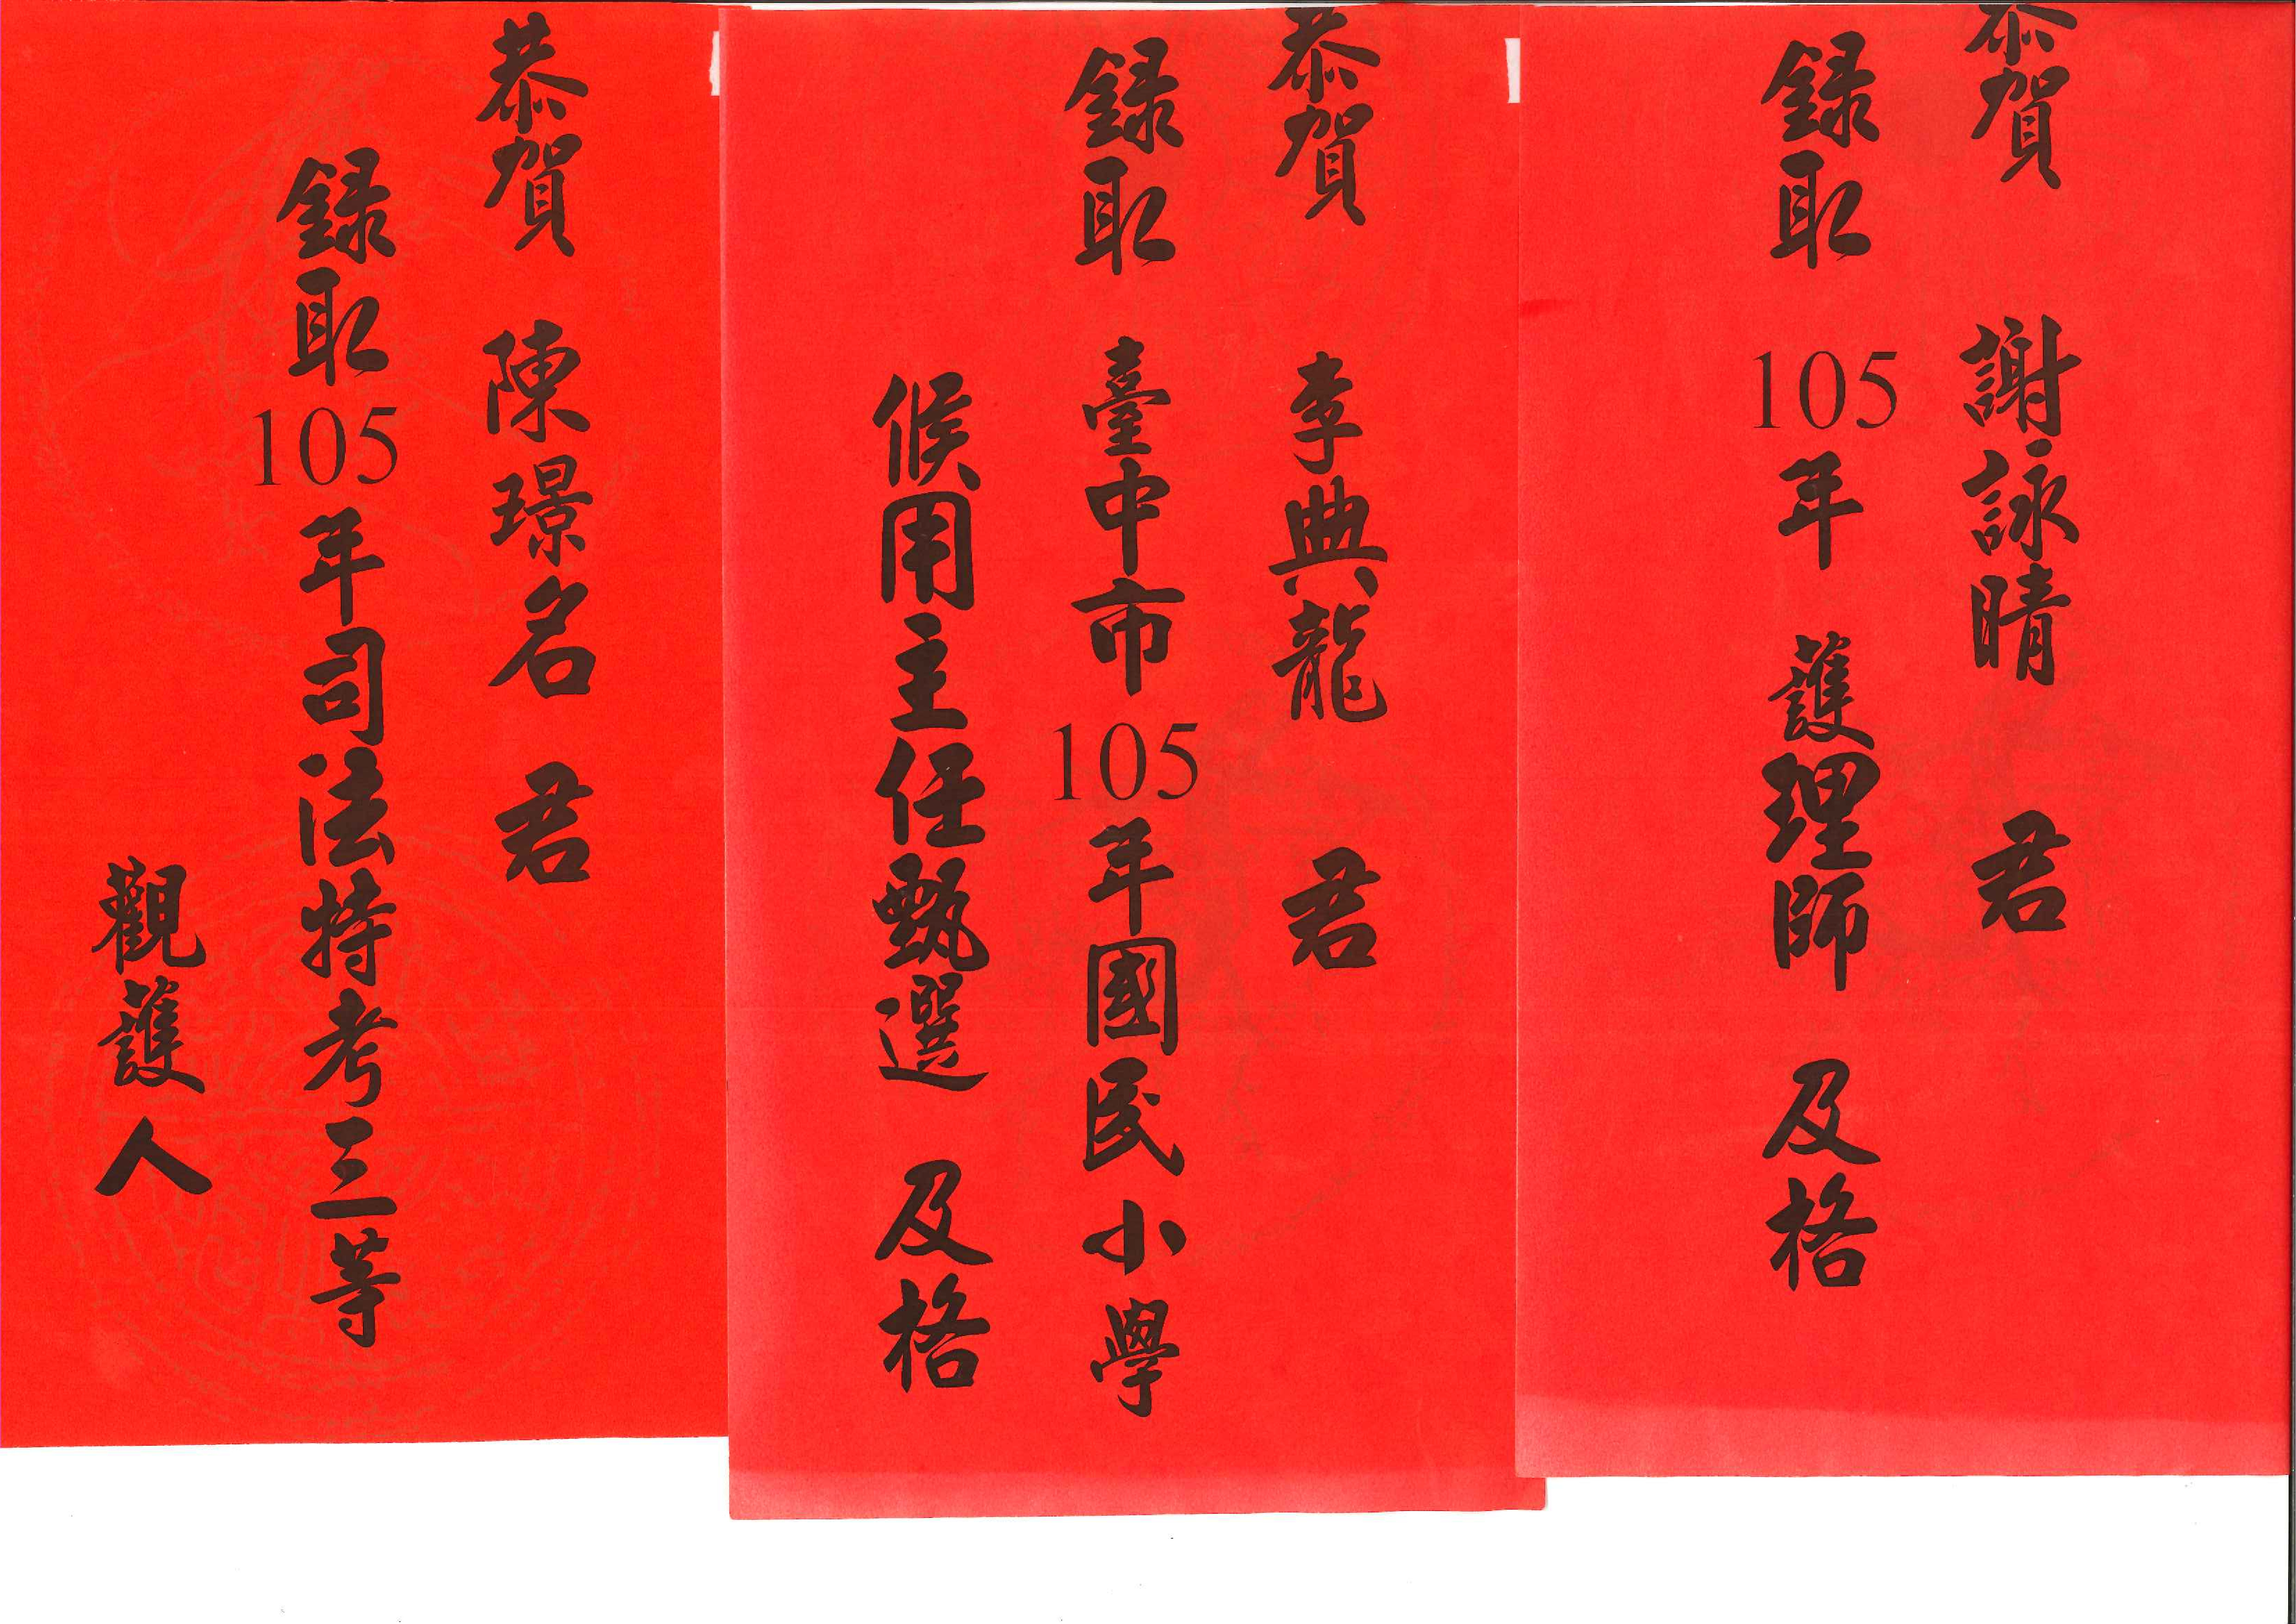 恭賀 謝詠晴 君
錄取 105年 護理師 及格
恭賀 李典龍 君
錄取 臺中市105年國民小學
候用主任甄選 及格
恭賀 陳璟名 君
錄取105年司法特考三等
觀護人